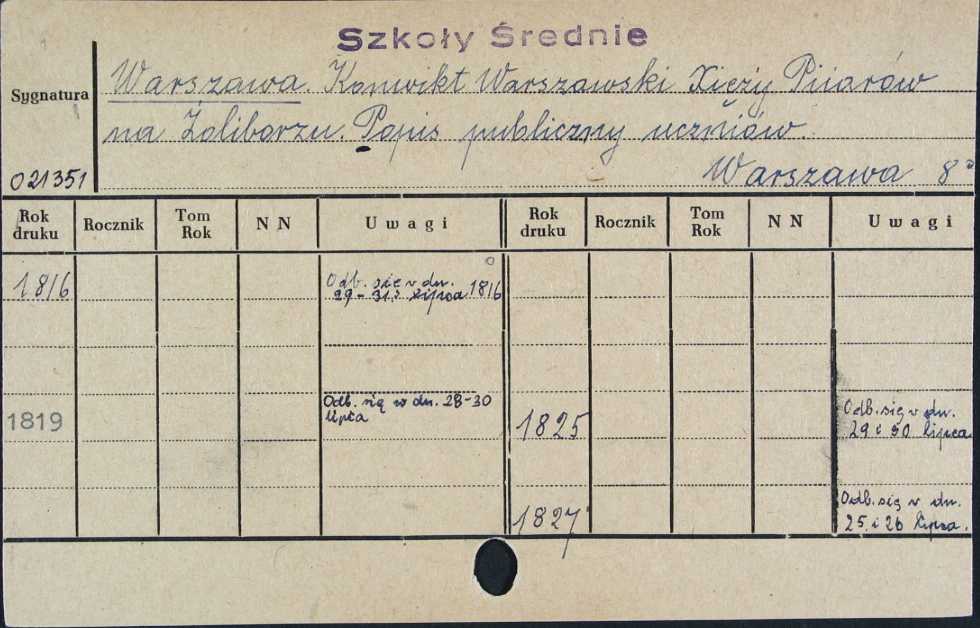 Szkoły Średnie
Sygnatura
Warszawa. Konwikt Warszawski Xięży Piiarów
na Żoliborzu. Popis publiczny uczniów.
021351
Warszawa 8°
Rok druku Rocznik Tom Rok NN Uwagi Rok druku Rocznik Tom Rok NN Uwagi
1816
Odb. się w dn.
29-31 lipca 1816
1819
Odb. się w dn. 28-30
lipca
1825
Odb. się w dn.
29 i 30 lipca
1827
Odb. się w dn.
25 i 26 lipca.